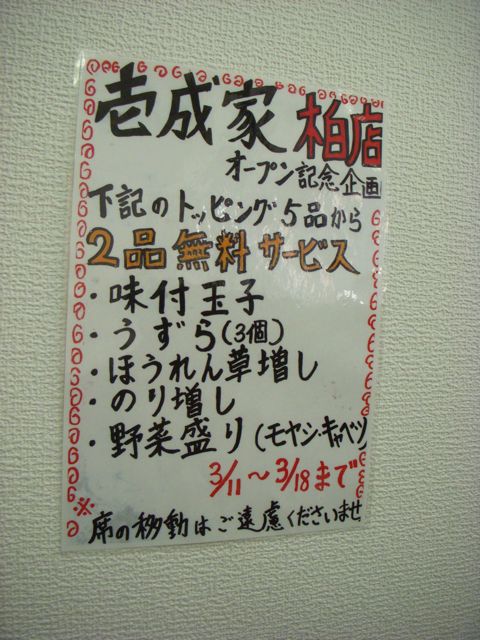 壱成家 柏店
オープン記念企画
下記のトッピング5品から
2品無料サービス
・味付玉子
・うずら(3個)
・ほうれん草増し
・のり増し
・野菜盛り(モヤシ・キャベツ
3/11〜3/18まで
※
席の移動はご遠慮くださいませ